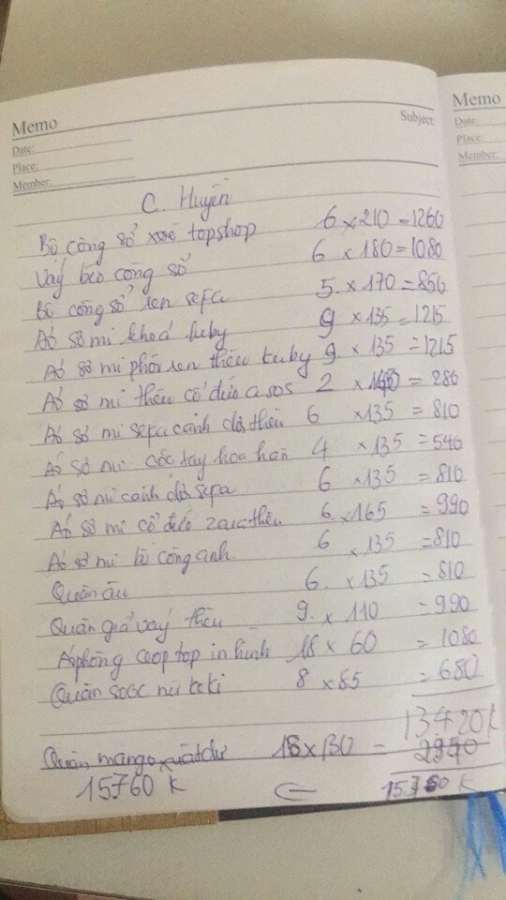 Memo
Subject:
Date:
Place:
Member:
C. Huyền
Bộ công sở xoè topshop 6 x 210 = 1260
Váy béo công sở 6 x 180 = 1080
Bộ công sở ren sefa 5. x 170 = 850
Áo sơ mi khoá luby 9 x 135 = 1215
Áo sơ mi phối ren thêu kuby 9. x 135 = 1215
Áo sơ mi thêu cổ đức asos 2 x 140 = 280
Áo sơ mi sefa cánh dơi thêu 6 x 135 = 810
Áo sơ mi cộc tay hoa hân 4 x 135 = 540
Áo sơ mi cánh dơi sefa 6 x 135 = 810
Áo sơ mi cổ đức zara thêu 6. x 165 = 990
Áo sơ mi bồ công anh 6 x 135 = 810
Quần âu 6. x 135 = 810
Quần giả váy thêu 9. x 110 = 990
Áo phông crop top in hình 18 x 60 = 1080
Quần sooc nữ kaki 8 x 85 = 680
13420K
Quần mango xuất dư 18 x 130 = 2340
15760 K
15760 K
Memo
Date:
Place:
Member: